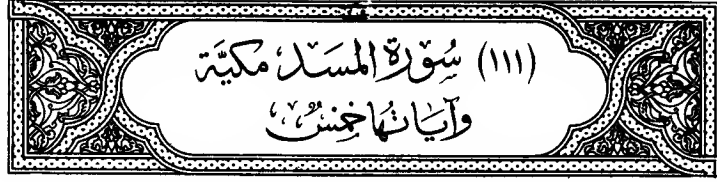 (١١١) سُورَة المَسَد مَكيَّة
وَآيَاتُهَا خَمْسٌ